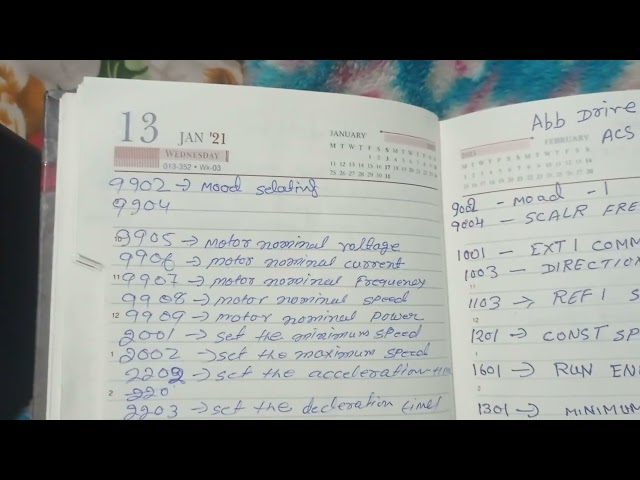 13 JAN '21
WEDNESDAY
013-352 • Wk-03
JANUARY
M T W T F S S M T W T F S S
11 12 13 14 15 16 17 18 19 20 21 22 23 24
25 26 27 28 29 30 31
9902 → Mood selating
9904
10 9905 → Motor nominal voltage
9906 → motor nominal current
11 9907 → motor nominal Frequency
9908 → motor nominal speed
12 9909 → motor nominal power
2001 → set the minimum speed
1 2002 → set the maximum speed
2202 → set the acceleration
2 220
2203 → set the decleration time1
Abb Drive
ACS
FEBRUARY
9902 - moad - 1
9904 - SCALR FRE
1001 - EXT1 COMM
1003 - DIRECTION
11
1103 → REF1 S
12
1201 → CONST SP
1
1601 → RUN EN
2
1301 → MINIMUM